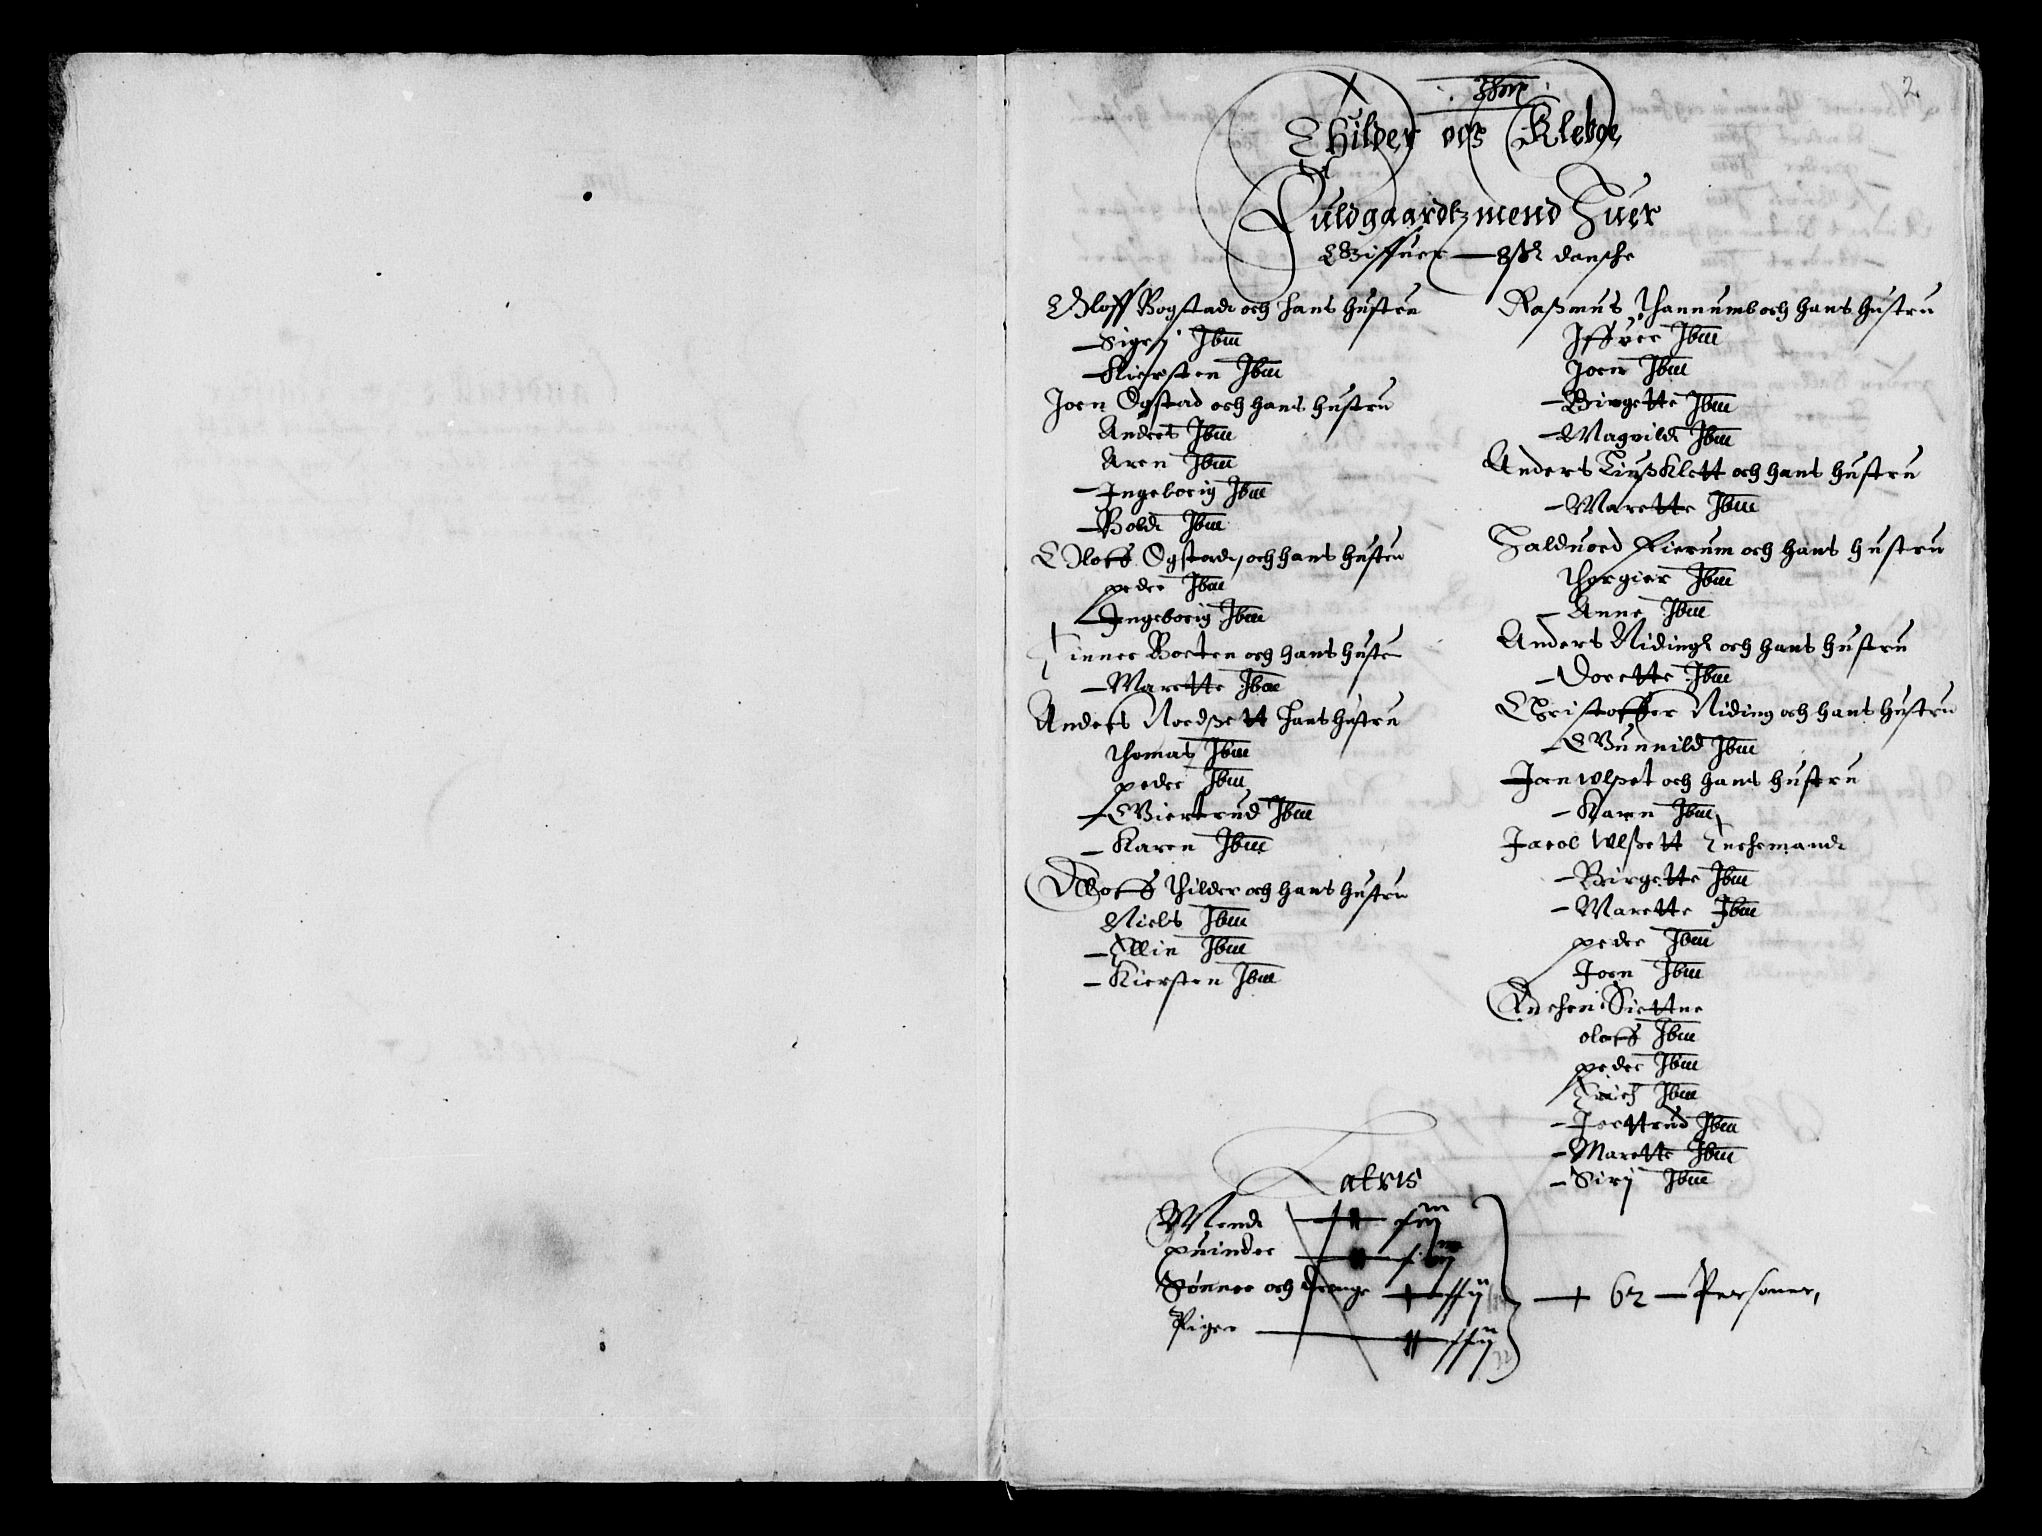 2
Thilder och Klebge
Fuldgaardtzmend Huer
Giffuer 8ß danske
Oloff Bogstad och hans hustru
Sigrj Ibm
Kiersten Ibm
Joen Ogstad och hans hustru
Anders Ibm
Aren Ibm
Ingeborig Ibm
Bold Ibm
Oloff Ogstad, och hans hustru
peder Ibm
Ingeborig Ibm
Finner Borten och hans hustru
Marette Ibm
Anders Nordsett hans hustru
Thomas Ibm
peder Ibm
Giertrud Ibm
Karen Ibm
Oloff Thilder och hans hustru
Niels Ibm
Ellin Ibm
Kiersten Ibm
Raßmus Thannumb och hans hustru
Iffuer Ibm
Joen Ibm
Birgette Ibm
Magnild Ibm
Anders Liußklett och hans hustru
Marette Ibm
Halduord Fierum och hans hustru
Thorgier Ibm
Anne Ibm
Anders Niding och hans hustru
Dorette Ibm
Christoffer Niding och hans hustru
Gunnild Ibm
Joen Wlset och hans hustru
Karen Ibm
Jacob Wlßett Enchemand
Birgette Ibm
Marette Ibm
peder Ibm
Joen Ibm
Enchen Siettne
oloff Ibm
peder Ibm
Erich Ibm
Joertrud Ibm
Marette Ibm
Sirj Ibm
Latris
Mend
quinder
Sønner och drenge
Piger
62 Personer,